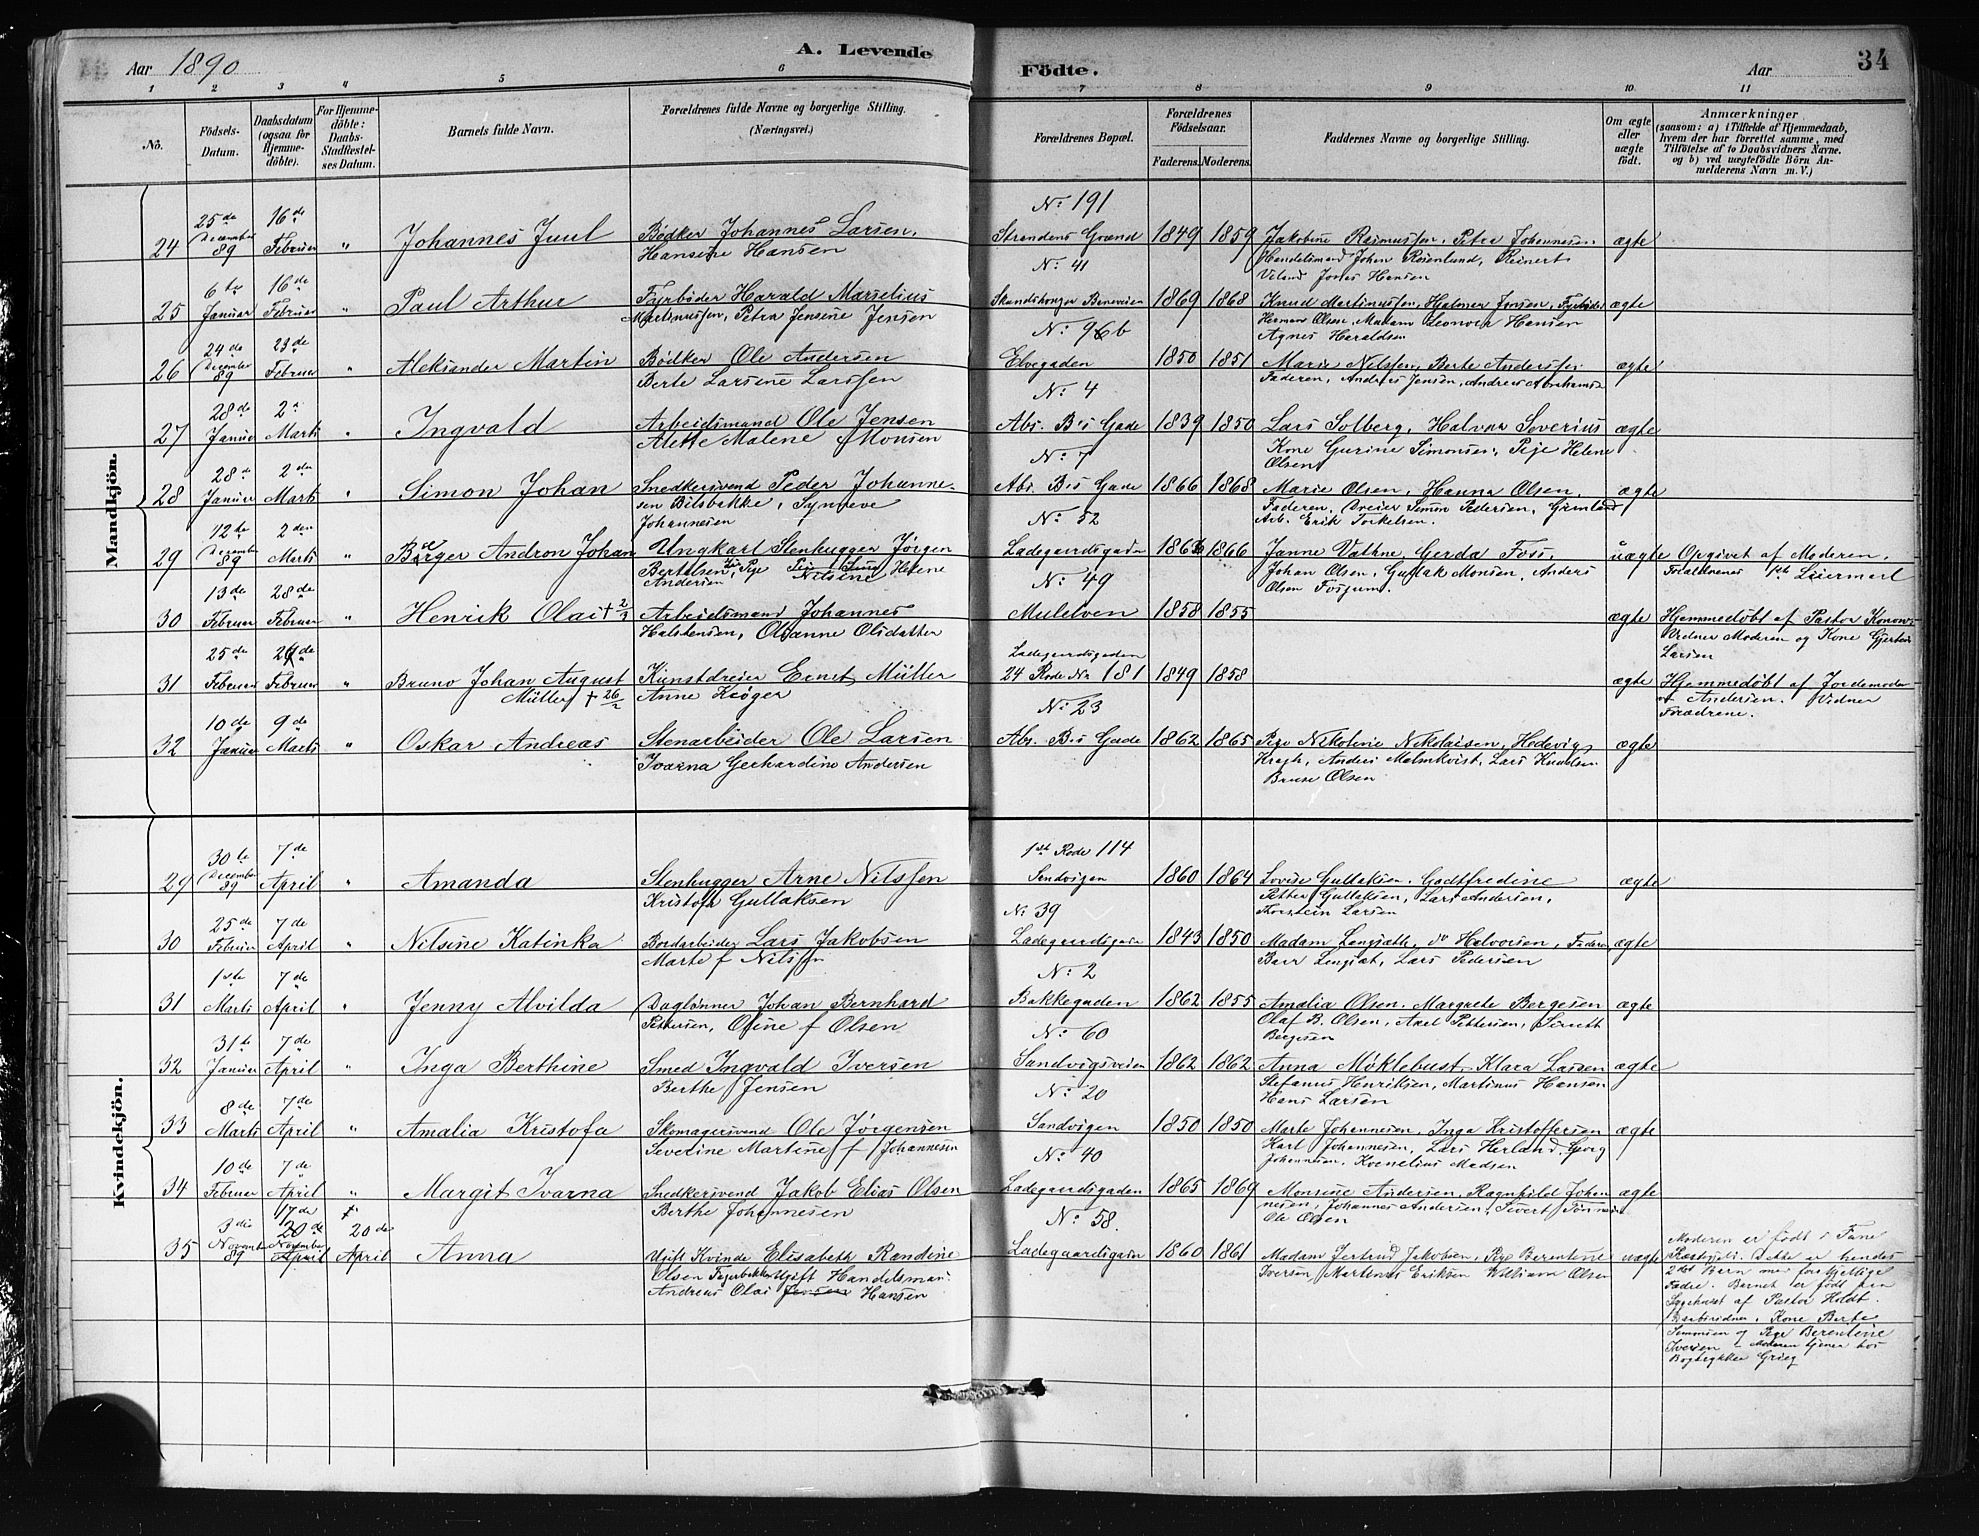 Aar 1890
A. Levende
Födte.
Aar
34
1 2 3 " 5 6 7 8 9 10 11
No.
Födsels-Datum.
Daabsdatum (ogsaa for Hjemme-döbte).
For Hjemme-döbte: Daabs-Stadfæstel-ses Datum.
Barnets fulde Navn.
Forældrenes fulde Navne og borgerlige Stilling. (Næringsvei.)
Forældrenes Bopæl.
Forældrenes Födselsaar.
Faderens. Moderens.
Faddernes Navne og borgerlige Stilling.
Om ægte eller uægte födt.
Anmærkninger
(saasom: a) i Tilfælde af Hjemmedaab, hvem der har forrettet samme, med Tilföielse af to Daabsvidners Navne. og b) ved uægtefödte Börn An-melderens Navn m. V.)
Mandkjön.
24 25de December 89 16de Februar " Johannes Juul Bødker Johannes Larsen, Hansine Hansen No 191 Strandens Grænd 1849 1859 Jakobine Rasmussen, Petra Johannesen Handelsmand Johan Rosenlund, Reinert Jonas Hansen ægte
25 6te Januar 16de Februar " Paul Arthur Fyrbøder Harald Marselius Martinussen, Petra Jensine Jensen No 41 1869 1868 Knud Martinussen, Halmar Jensen, Fyrbøder Herman Olsen, Madam Leonora Hansen Agnes Haraldsen ægte
26 24de December 89 23de Februar " Aleksander Martin Bødker Ole Andersen Berte Larsine Larssen No 96b Elvegaden 1850 1851 Marie Nilssen, Berte Anderssen Faderen, Andreas Jensen, Andreas ægte
27 28de Januar 2 Marts " Ingvald Arbeidsmand Ole Jensen Alette Malene f Monsen No 4 Abs. B's Gade 1839 1850 Lars Solberg, Halvor Soverius Kone Gurine Simonsen, Pige Helene Olsen ægte
28 28de Januar 2den Marts " Simon Johan Snedkersvend Peder Johanne-sen Bilsbakke, Synneve Johannesen No 7 Abs. B's Gade 1866 1868 Marie Olsen, Hanna Olsen, Faderen, Dreier Simon Pedersen, Arb. Erik Torkelsen. ægte
29 12te December 89 2den Marts " Børger Andron Johan Ungkarl Stenhugger Jørgen Bertelsen, Pige Nilsine Helene Andersen No 52 Ladegaardsgaden 1866 Janne Vathne, Gerda Foss, Johan Olsen, Gullak Monsen, Anders Olsen Fosgum uægte Opgivet af Moderen. Forældrenes 1ste Leiermaal
30 13de Februar 28de Februar " Henrik Olai † 2/3 Arbeidsmand Johannes Halstensen, Olianne Olsdatter No 49 Mulelven 1858 1855 ægte Hjemmedøbt af Pastor Konow Vidner Moderen og Kone Larsen
31 25de Februar 26de Februar " Bruno Johan August Müller † 26/2 Kunstdreier Ernst Müller Anne Krøger Ladegaardsgaden 24 Rode No 181 1849 1858 ægte Hjemmedøbt af Jordemoder Andersen. Vidner Forældrene.
32 10de Januar 9de Marts " Oskar Andreas Stenarbeider Ole Larsen Ivarna Gerhardine Andersen No 23 Abs. B's Gade 1862 1865 Pige Nikoline Nikolaisen, Hedevig Kragh, Anders Malmkvist, Lars Knudsen Olsen ægte
Kvindekjön.
29 30te December 89 7de April " Amanda Stenhugger Arne Nilssen Kristofa Gullaksen 1ste Rode 114 Sandvigen 1860 1864 Lovise Gullaksen, Godtfredine Petter Gulleksen, Lars Andersen, Thorstein Larsen ægte
30 25de Februar 7de April " Nilsine Katinka Bordarbeider Lars Jakobsen Marte f Nilssen No 39 Ladegaardsgaden 1843 1850 Madam Lengsæth, do Halvorsen, Faderen, Lars Pedersen ægte
31 1ste Marts 7de April " Jenny Alvilda Daglønner Johan Bernhard Pettersen, Oline f Olsen No 2 Bakkegaden 1862 1855 Amalia Olsen, Margrete Bergesen Olaf B. Olsen, Axel Pettersen, Bergesen ægte
32 31te Januar 7de April " Inga Berthine Smed Ingvald Iversen Berthe Jensen No 60 Sandvigsveien 1862 1862 Anna Møklebust, Klara Larsen Stefanus Henriksen, Martinus Hansen Hans Larsen ægte
33 8de Marts 7de April " Amalia Kristofa Skomagersvend Ole Jørgensen Severine Martine f Johannesen No 20 Sandvigen 1850 1850 Marte Johannesen, Inga Kristoffersen Karl Johannesen, Lars Herland, Georg Johannesen, Kornelius Madsen ægte
34 10de Februar 7de April " Margit Ivarna Snedkersvend Jakob Elias Olsen Berthe Johannesen No 40 Ladegaardsgaden 1865 1869 Monsine Andersen, Ragnhild Johan-nesen, Johannes Andersen, Sivert Ole Olsen ægte
35 3die November 89 17de November 20de April 20de April Anna Ugift Kvinde Elisabeth Randine Olsen Ugift Handelsmand Andreas Olai Jensen Hansen No 58. Ladegaardsgaden 1860 1861 Madam Jertrud Jakobsen, Pige Berentine Iversen, Martinus Eriksen William Olsen uægte Moderen er født i Fane Præstegjeld. Dette er hendes 2det Barn med forskjellige Fædre. Barnet er født paa Sygehuset af Pastor Holdt. Daabsvidner, Kone Berte Simonsen og Pige Berentine Iversen Moderen tjener hos Bogtrykker Grieg